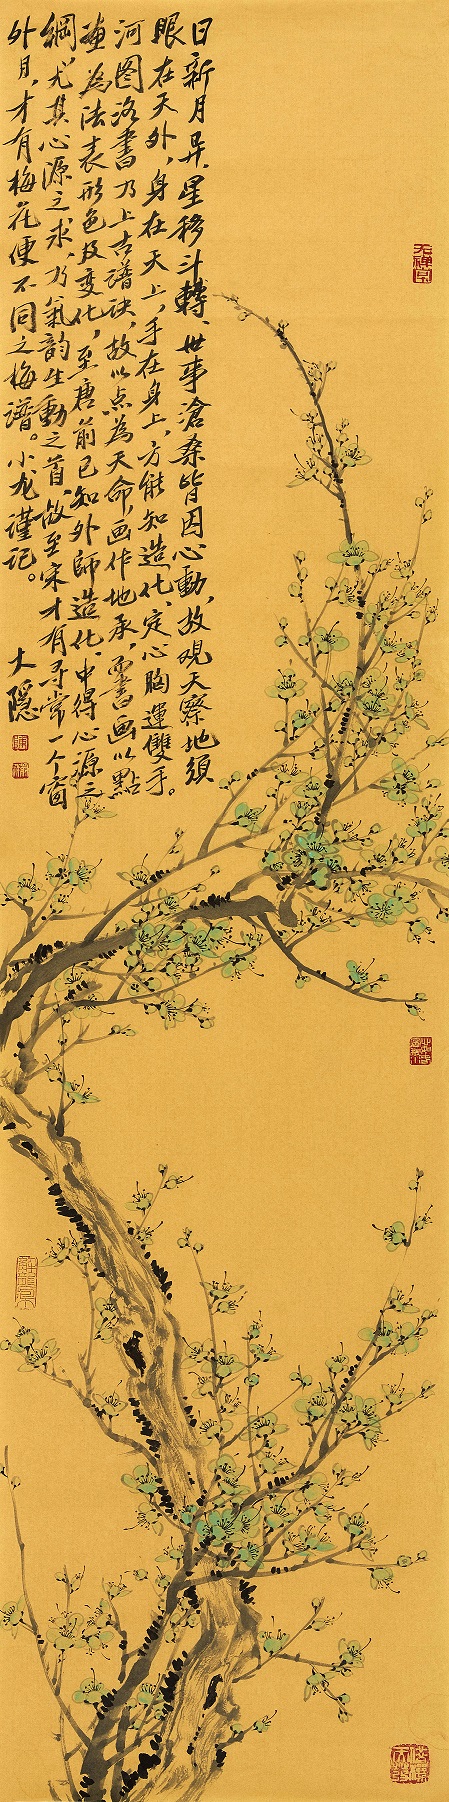 日新月异、星移斗轉、世事滄桑皆因心動，故观天察地须
眼在天外，身在天上，手在身上，方能知造化、定心胸運雙手。
河图洛書乃上古譜訣，故以点為天命，画作地承，書画以點
画為法表形色及变化，至唐前已知外師造化，中得心源之
綱，尤其心源之求，乃氣韵生動之首，故至宋才有寻常一个窗
外月，才有梅花便不同之梅譜。小龙谨记。
大隐